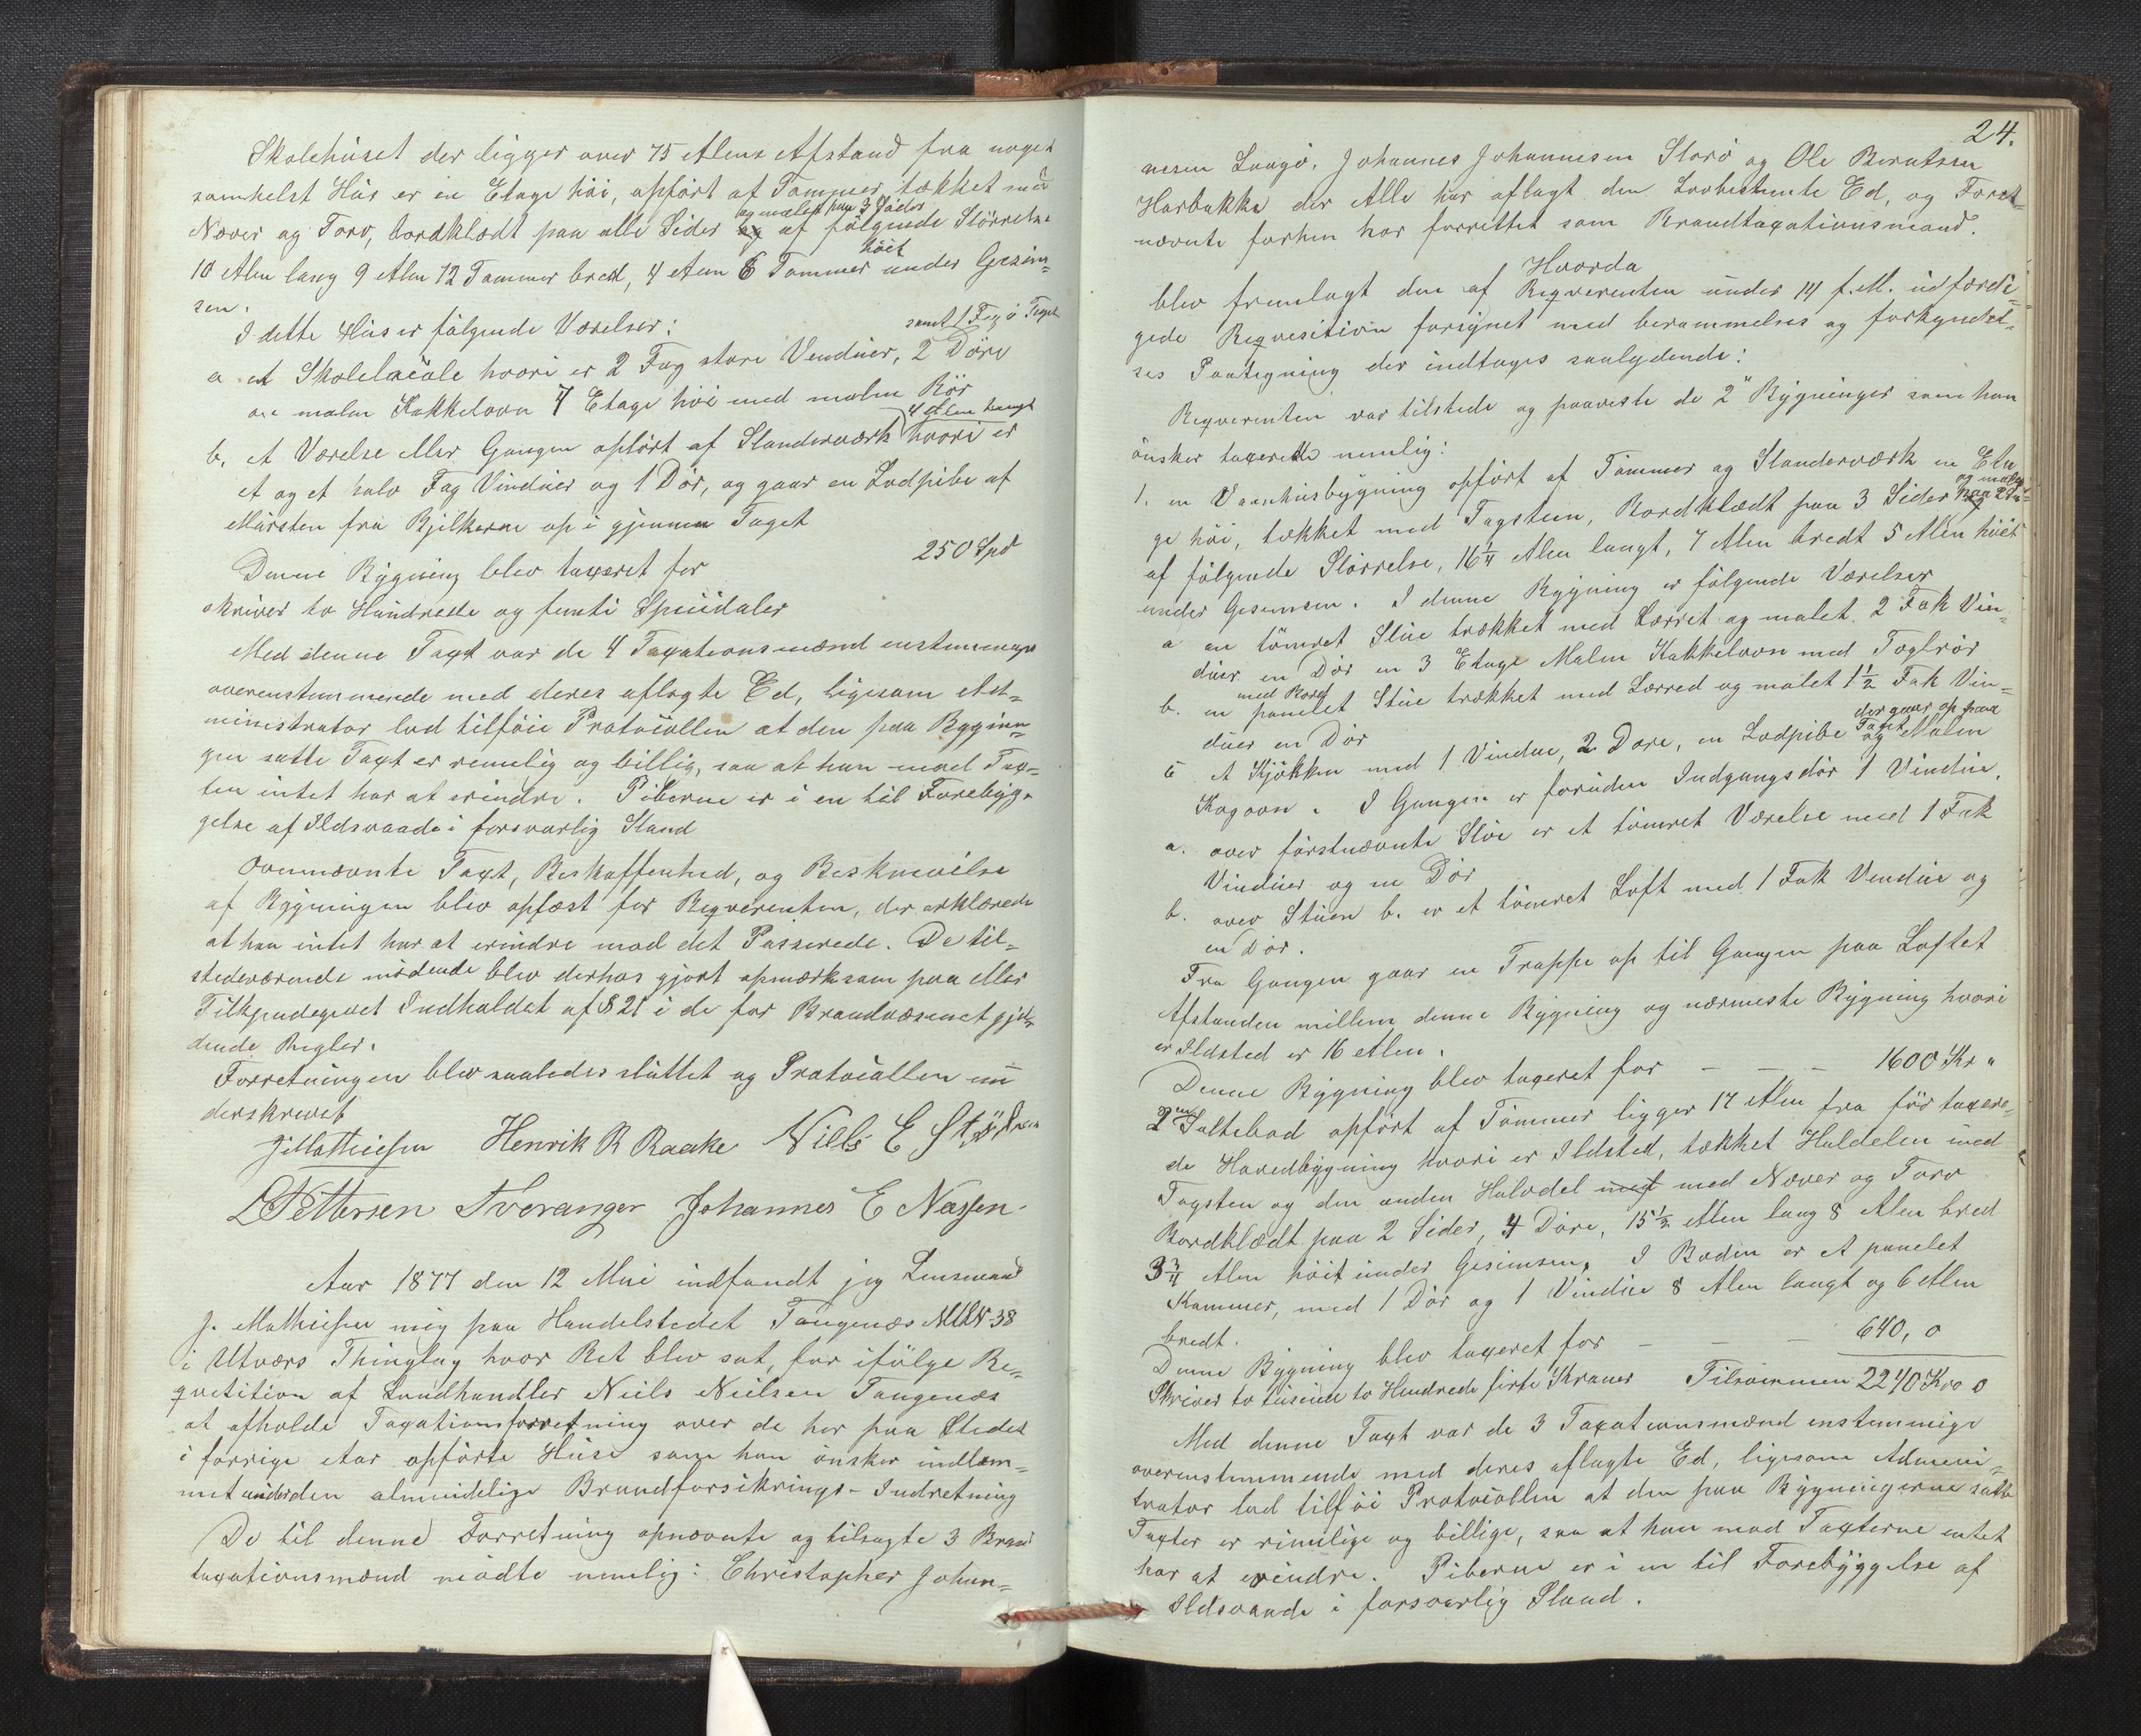 Skolehuset der ligger over 75 Alens Afstand fra noget
somhelst Hus er en Etage høi, opført af Tømmer tækket med
og malet paa 3 Sider
Næver og Torv, bordklædt paa alle Sider og af følgende Størrelse
høit
10 Alen lang 9 Alen 12 Tommer bred, 4 Alen 6 Tommer under Gesim=
sen.
I dette Hus er følgende Værelser:
samt 1 Fag i Taget
a et Skolelocale hvori er 2 Fag store Vinduer, 2 Døre
en malm Kakkelovn 4 Etage høi med malm Rør
4 Alen langt
b. et Værelse eller Gangen opført af Standerværk hvori er
et og et halv Fag Vinduer og 1 Dør, og gaar en Lodpibe af
Mursten fra Bjelkerne op i gjennem Taget
Denne Bygning blev taxeret for 250 Spd
skriver to Hundrede og femti Speciedaler
Med denne Taxt var de 4 Taxationsmænd enstemmige
overenstemmende med deres aflagte Ed, ligesom Ad=
ministrator lod tilføie Protocollen at den paa Bygnin=
gen satte Taxt er rimelig og billig, saa at han mod Tax=
ten intet har at erindre. Piberne er i en til Forebyg=
gelse af Ildsvaade i forsvarlig Stand
Ovennævnte Taxt, Beskaffenhed, og Beskrivelse
af Bygningen blev oplæst for Reqverenten, der erklærede
at han intet har at erindre mod det Passerede. De til=
stedeværende mødende blev derhos gjort opmærksom paa eller
Tilkjendegivet Indholdet af § 21 i de for Brandvæsenet gjæl=
dende Regler.
Forretningen blev saaledes sluttet og Protocollen un
derskrevet
J. Mathiesen Henrik R Raake Niels E
L Pettersen Tveranger Johannes E Nassen.
Aar 1877 den 12 Mai indfandt jeg Lensmand
J. Mathiesen mig paa Handelstedet Tangenæs 38
i Utvær Thinglag hvor Ret blev sat, for ifølge Re=
qvisition af Landhandler Niels Nielsen Tangenæs
at afholde Taxationsforretning over de her paa Stedet
i forrige Aar opførte Huse som han ønsker indlem=
met under den almindelige Brandforsikrings-Indretning
De til denne Forretning opnævnte og tilsagte 3 Brand
taxationsmænd mødte nemlig: Christopher Johan=
24.
nesen Langø, Johannes Johannesen Storø og Ole Berntsen
Harbakke der Alle har aflagt den Lovbestemte Ed, og Forst=
nævnte forhen har forrettet som Brandtaxationsmand.
Hvorda
blev fremlagt den af Reqverenten under 14 f. M. udfærdi=
gede Reqvisition forsynet med berammelses og forkyndel=
ses Paategning der indtages saalydende:
Reqverenten var tilstede og paaviste de 2 Bygninger som han
ønsker taxerede nemlig:
1. en Vaanhusbygning opført af Tømmer og Standerværk en Eta
og malet
ge høi, tækket med Tagsteen, Bordklædt paa 3 Sider paa 2
af følgende Størrelse, 16 1/4 Alen langt, 7 Alen bredt 5 Alen høit
under Gesimsen. I denne Bygning er følgende Værelser
a en tømret Stue trækket med Lærret og malet. 2 Fak Vin=
duer en Dør en 3 Etage Malm Kakkelovn med Toglrør
med Bord
b. en panelet Stue trækket med Lærred og malet 1 1/2 Fak Vin=
duer en Dør
der gaar op paa
Taget
c et Kjøkken med 1 Vindue, 2 Døre, en Lodpibe og Malm
Kogovn. I Gangen er foruden Indgangsdør 1 Vindue.
a. over førstnævnte Stue er et tømret Værelse med 1 Fak
Vinduer og en Dør
b. over Stuen b. er et tømret Loft med 1 Fak Vindue og
en Dør.
Fra Gangen gaar en Trappe op til Gangen paa Loftet
Afstanden millem denne Bygning og nærmeste Bygning hvori
er Ildsted er 16 Alen.
Denne Bygning blev taxeret for — — — 1600 Kr "
2 en Saltebod opført af Tømmer ligger 17 Alen fra før taxere=
de Hovedbygning hvori er Ildsted, tækket Haldelen med
Tagsten og den anden Halvdel med med Næver og Torv
Bordklædt paa 2 Sider, 4 Døre, 15 1/2 Alen lang 8 Alen bred
3 3/4 Alen høit under Gesimsen. I Boden er et panelet
Kammer, med 1 Dør og 1 Vindue 8 Alen langt og 6 Alen
bredt.
Denne Bygning blev taxeret for — — — 640, 0
Skriver to tusinde to Hundrede firti Kroner Tilsammen 2240 Kro 0
Med denne Taxt var de 3 Taxationsmænd enstemmige
overenstemmende med deres aflagte Ed, ligesom Admini=
trator lod tilføi Protocollen at den paa Bygningerne satte
Taxter er rimelige og billige, saa at han mod Taxterne intet
har at erindre. Piberne er i en til Forebyggelse af
Ildsvaade i forsvarlig Stand.